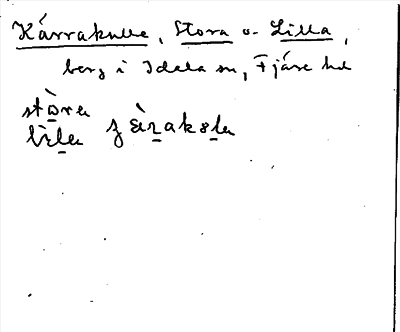 Kärrakulle, Stora o. Lilla,
berg i Idala sn, Fjäre hd
stòra
lìla